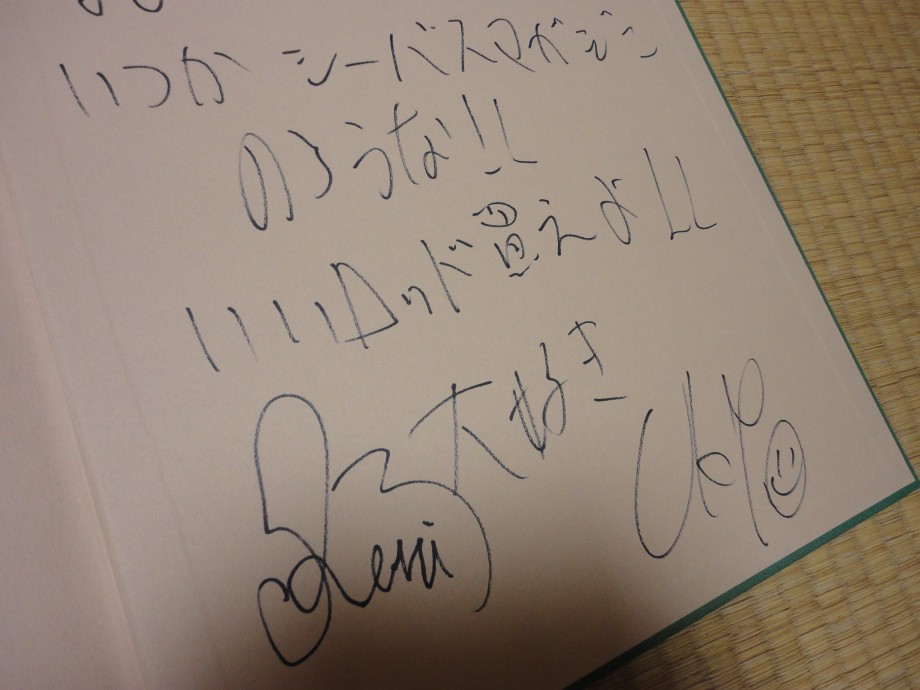 いつか シーバスマガジン
のろうな!!
いいロッド買えよ!!
大好き